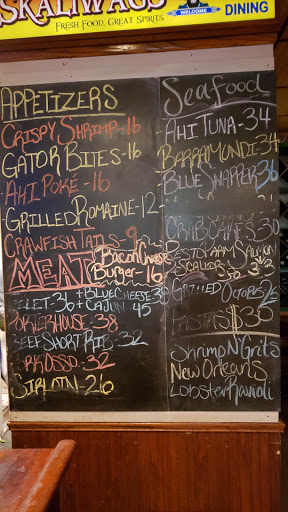 SKALIWAGS
FRESH FOOD, GREAT SPIRITS
WELCOME
DINING
APPETIZERS
CRISPY SHRIMP-16
GATOR BITES-16
AHI POKÉ -16
GRILLED ROMAINE-12
CRAWFISH TAILS-9
MEAT
BACON CHEESE
BURGER-16
FILLET 36 + BLUE CHEESE 38
+ CAJUN -45
PORTERHOUSE-38
BEEF SHORT RIB-32
PORK OSSO-32
SIRLOIN-26
Seafood
AHI TUNA-34
BARRAMUNDI-34
BLUE SNAPPER 36
CRAB CAKES 30
SALMON
GRILLED OCTOPUS
PASTAS $30
SHRIMP N GRITS
NEW ORLEANS
LOBSTER RAVIOLI